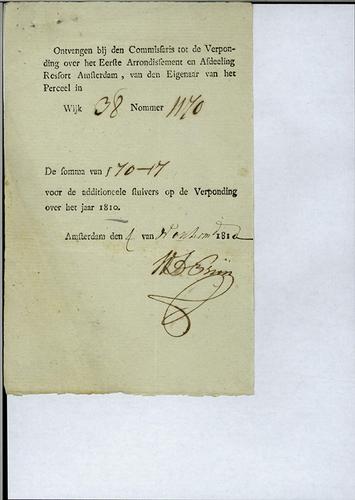 Ontvangen bij den Commissaris tot de Verpon-
ding over het Eerste Arrondissement en Afdeeling
Ressort Amsterdam, van den Eigenaar van het
Perceel in
Wijk 38 Nommer 1170
De somma van ƒ 70-17
voor de additioneele stuivers op de Verponding
over het jaar 1810.
Amsterdam den 4 van 1810